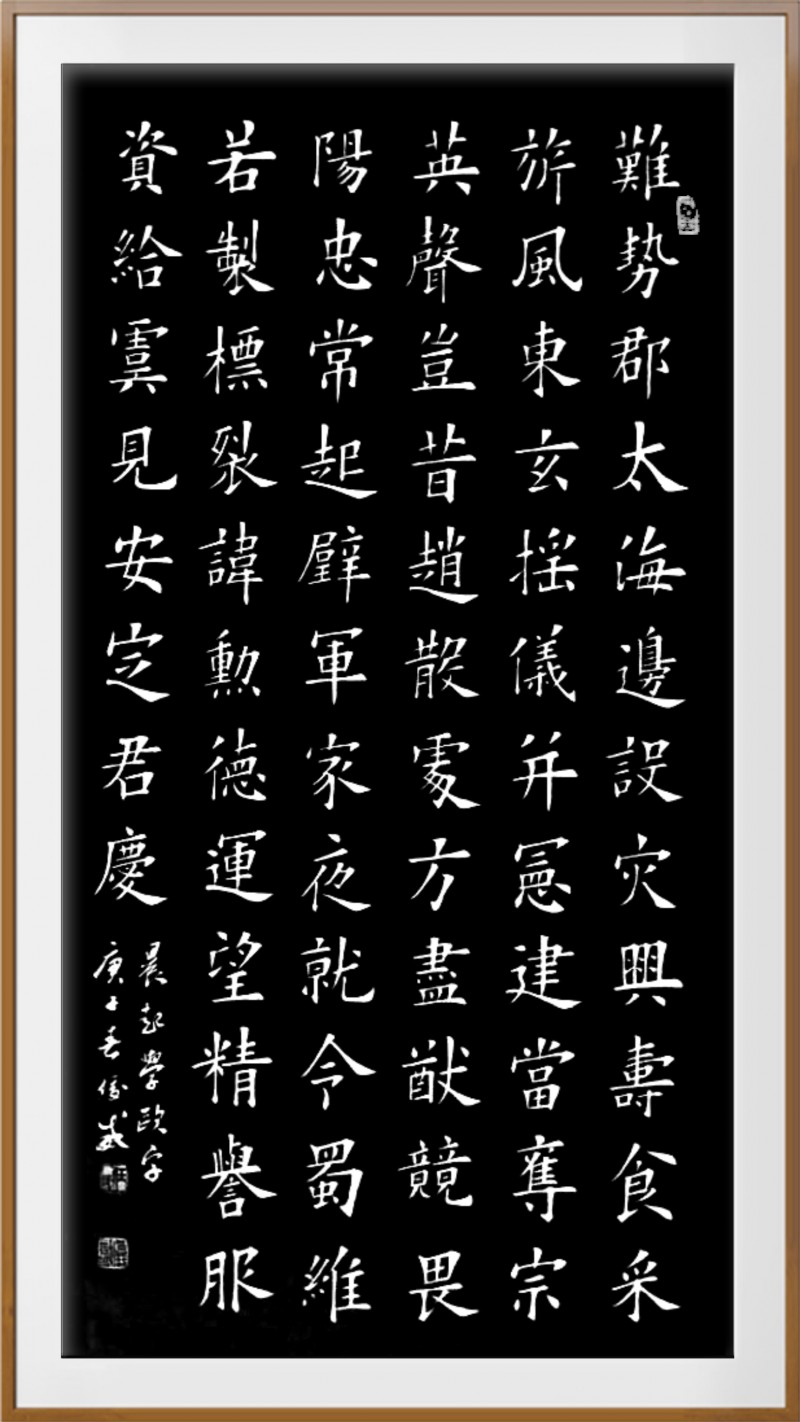 難勢郡太海邊設灾興壽食采
旂風東玄揺儀并憲建當奪宗
英聲豈昔趙散處方盡猷競畏
陽忠常起辟軍家夜就令蜀維
若製標裂諱勳德運望精譽服
資給虞見安定君慶
晨起學歐字
庚子春